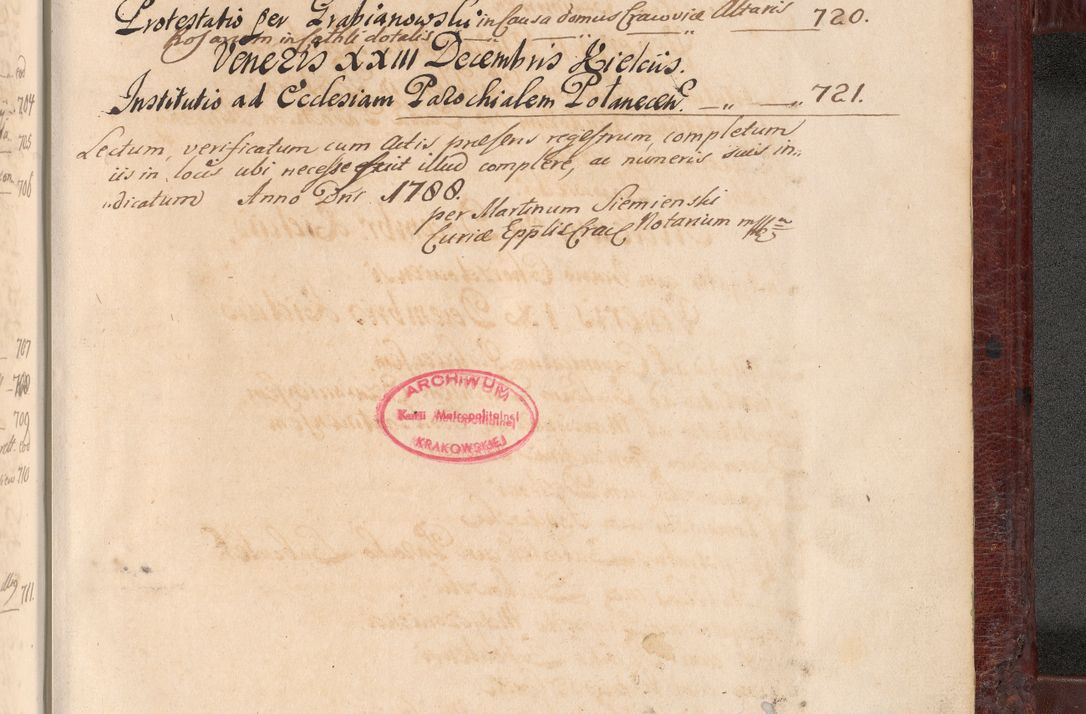 Protestatio per Grabianowski in Causa domus Cracoviæ Altaris 720.
Rosarium in Cathli dotalis
Veneris XXIII Decembris Kielciis.
Institutio ad Ecclesiam Parochialem Połanecen. 721.
Lectum, verificatum cum Actis præsens regestrum, completum
iis in locis ubi necesse fuit illud complere, ac numeris suis in„
„dicatum Anno Dni 1788.
per Martinum Siemienski
Curiæ Epplis Crac Notarium mpp
ARCHIWUM
Kurii Metropolitalnej
KRAKOWSKIEJ
704
705
706
707
709
710
711.